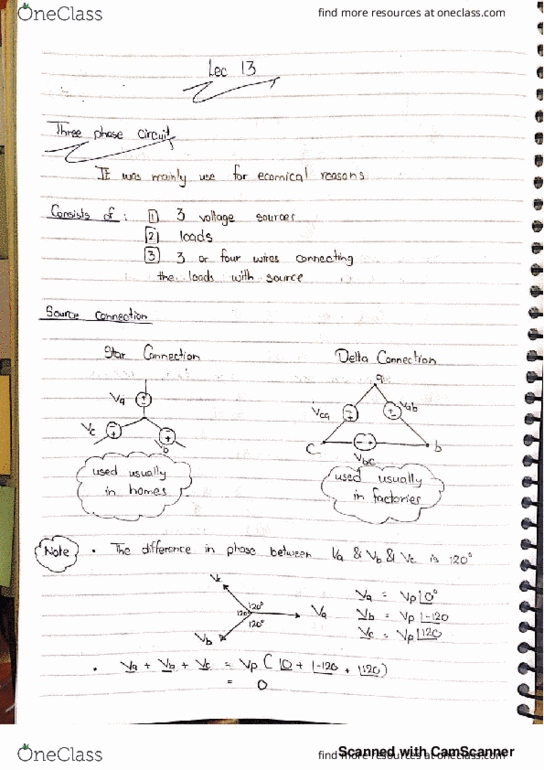 OneClass
find more resources at oneclass.com
Lec 13
Three phase circuit
It was mainly use for ecomical reasons
Consists of : 1 3 voltage sources
2 loads
3 3 or four wires connecting
the loads with source
Source connection
Star Connection
Delta Connection
a
Va
Vca
Vab
Vc
Vb
c
b
Vbc
used usually
in homes
used usually
in factories
Note
• The difference in phase between Va & Vb & Vc is 120°
Vc
120°
120°
120°
Va
Vb
Va = Vp∠0°
Vb = Vp∠-120
Vc = Vp∠120
• Va + Vb + Vc = Vp (∠0 + ∠-120 + ∠120)
= 0
OneClass
find more resources at oneclass.com
Scanned with CamScanner